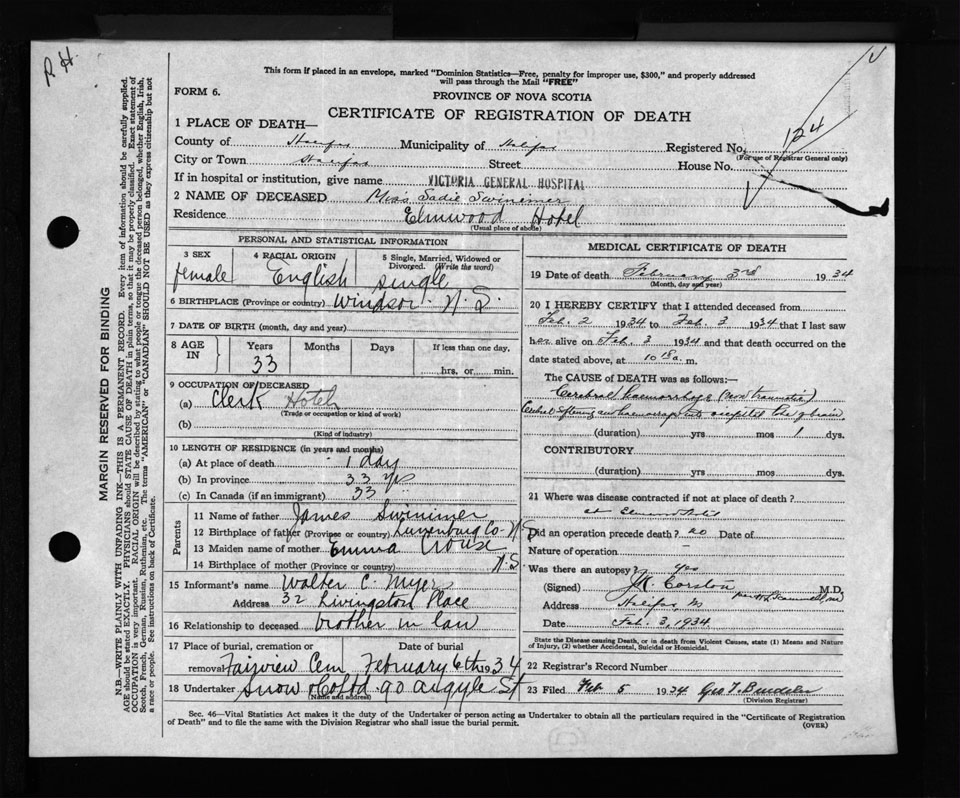 R. H.
This form if placed in an envelope, marked "Dominion Statistics—Free, penalty for improper use, $300," and properly addressed
will pass through the Mail "FREE"
FORM 6.
PROVINCE OF NOVA SCOTIA
CERTIFICATE OF REGISTRATION OF DEATH
1 PLACE OF DEATH—
County of Halifax Municipality of Halifax Registered No. 124
(For use of Registrar General only)
City or Town Halifax Street House No.
If in hospital or institution, give name VICTORIA GENERAL HOSPITAL
2 NAME OF DECEASED Miss Sadie Swinimer
Residence Elmwood Hotel
(Usual place of abode)
PERSONAL AND STATISTICAL INFORMATION
3 SEX 4 RACIAL ORIGIN 5 Single, Married, Widowed or
Divorced. (Write the word)
female English single
6 BIRTHPLACE (Province or country) Windsor N. S.
7 DATE OF BIRTH (month, day and year)
8 AGE IN Years Months Days If less than one day,
33 hrs. or min.
9 OCCUPATION OF DECEASED
(a) Clerk Hotel
(Trade or occupation or kind of work)
(b)
(Kind of industry)
10 LENGTH OF RESIDENCE (in years and months)
(a) At place of death 1 day
(b) In province 33 yrs
(c) In Canada (if an immigrant) 33 "
Parents
11 Name of father James Swinimer
12 Birthplace of father (Province or country) Lunenburg Co. N.S.
13 Maiden name of mother Emma Crouse
14 Birthplace of mother (Province or country) N.S.
15 Informant's name Walter C. Myer
Address 32 Livingston Place
16 Relationship to deceased brother in law
17 Place of burial, cremation or Date of burial
removal Fairview Cem February 6th 1934
18 Undertaker Snow & Co Ltd 90 Argyle St
(Name and address)
MEDICAL CERTIFICATE OF DEATH
19 Date of death February 3rd 1934
(Month, day and year)
20 I HEREBY CERTIFY that I attended deceased from
Feb. 2 1934 to Feb. 3 1934 that I last saw
her alive on Feb. 3 1934 and that death occurred on the
date stated above, at 10 a. m.
The CAUSE of DEATH was as follows:—
Cerebral haemorrhage
brain
(duration) yrs mos 1 dys.
CONTRIBUTORY
(duration) yrs mos dys.
21 Where was disease contracted if not at place of death?
at
Did an operation precede death? no Date of
Nature of operation —
Was there an autopsy? Yes
(Signed) M.D.
Address Halifax
Date Feb. 3, 1934
State the Disease causing Death, or in death from Violent Causes, state (1) Means and Nature
of Injury, (2) whether Accidental, Suicidal or Homicidal.
22 Registrar's Record Number
23 Filed Feb 5 1934 Geo T.
(Division Registrar)
Sec. 46—Vital Statistics Act makes it the duty of the Undertaker or person acting as Undertaker to obtain all the particulars required in the "Certificate of Registration
of Death" and to file the same with the Division Registrar who shall issue the burial permit.
(OVER)
MARGIN RESERVED FOR BINDING
N.B.—WRITE PLAINLY WITH UNFADING INK—THIS IS A PERMANENT RECORD. Every item of information should be carefully supplied.
AGE should be stated EXACTLY. PHYSICIANS should STATE CAUSE OF DEATH in plain terms, so that it may be properly classified. Exact statement of
OCCUPATION is very important. RACIAL ORIGIN will be described by stating to what people or tongue the deceased person belonged, whether English, Irish,
Scotch, French, German, Russian, Ruthenian, etc. The terms "AMERICAN" or "CANADIAN" SHOULD NOT BE USED as they express citizenship but not
a race or people. See instructions on back of Certificate.